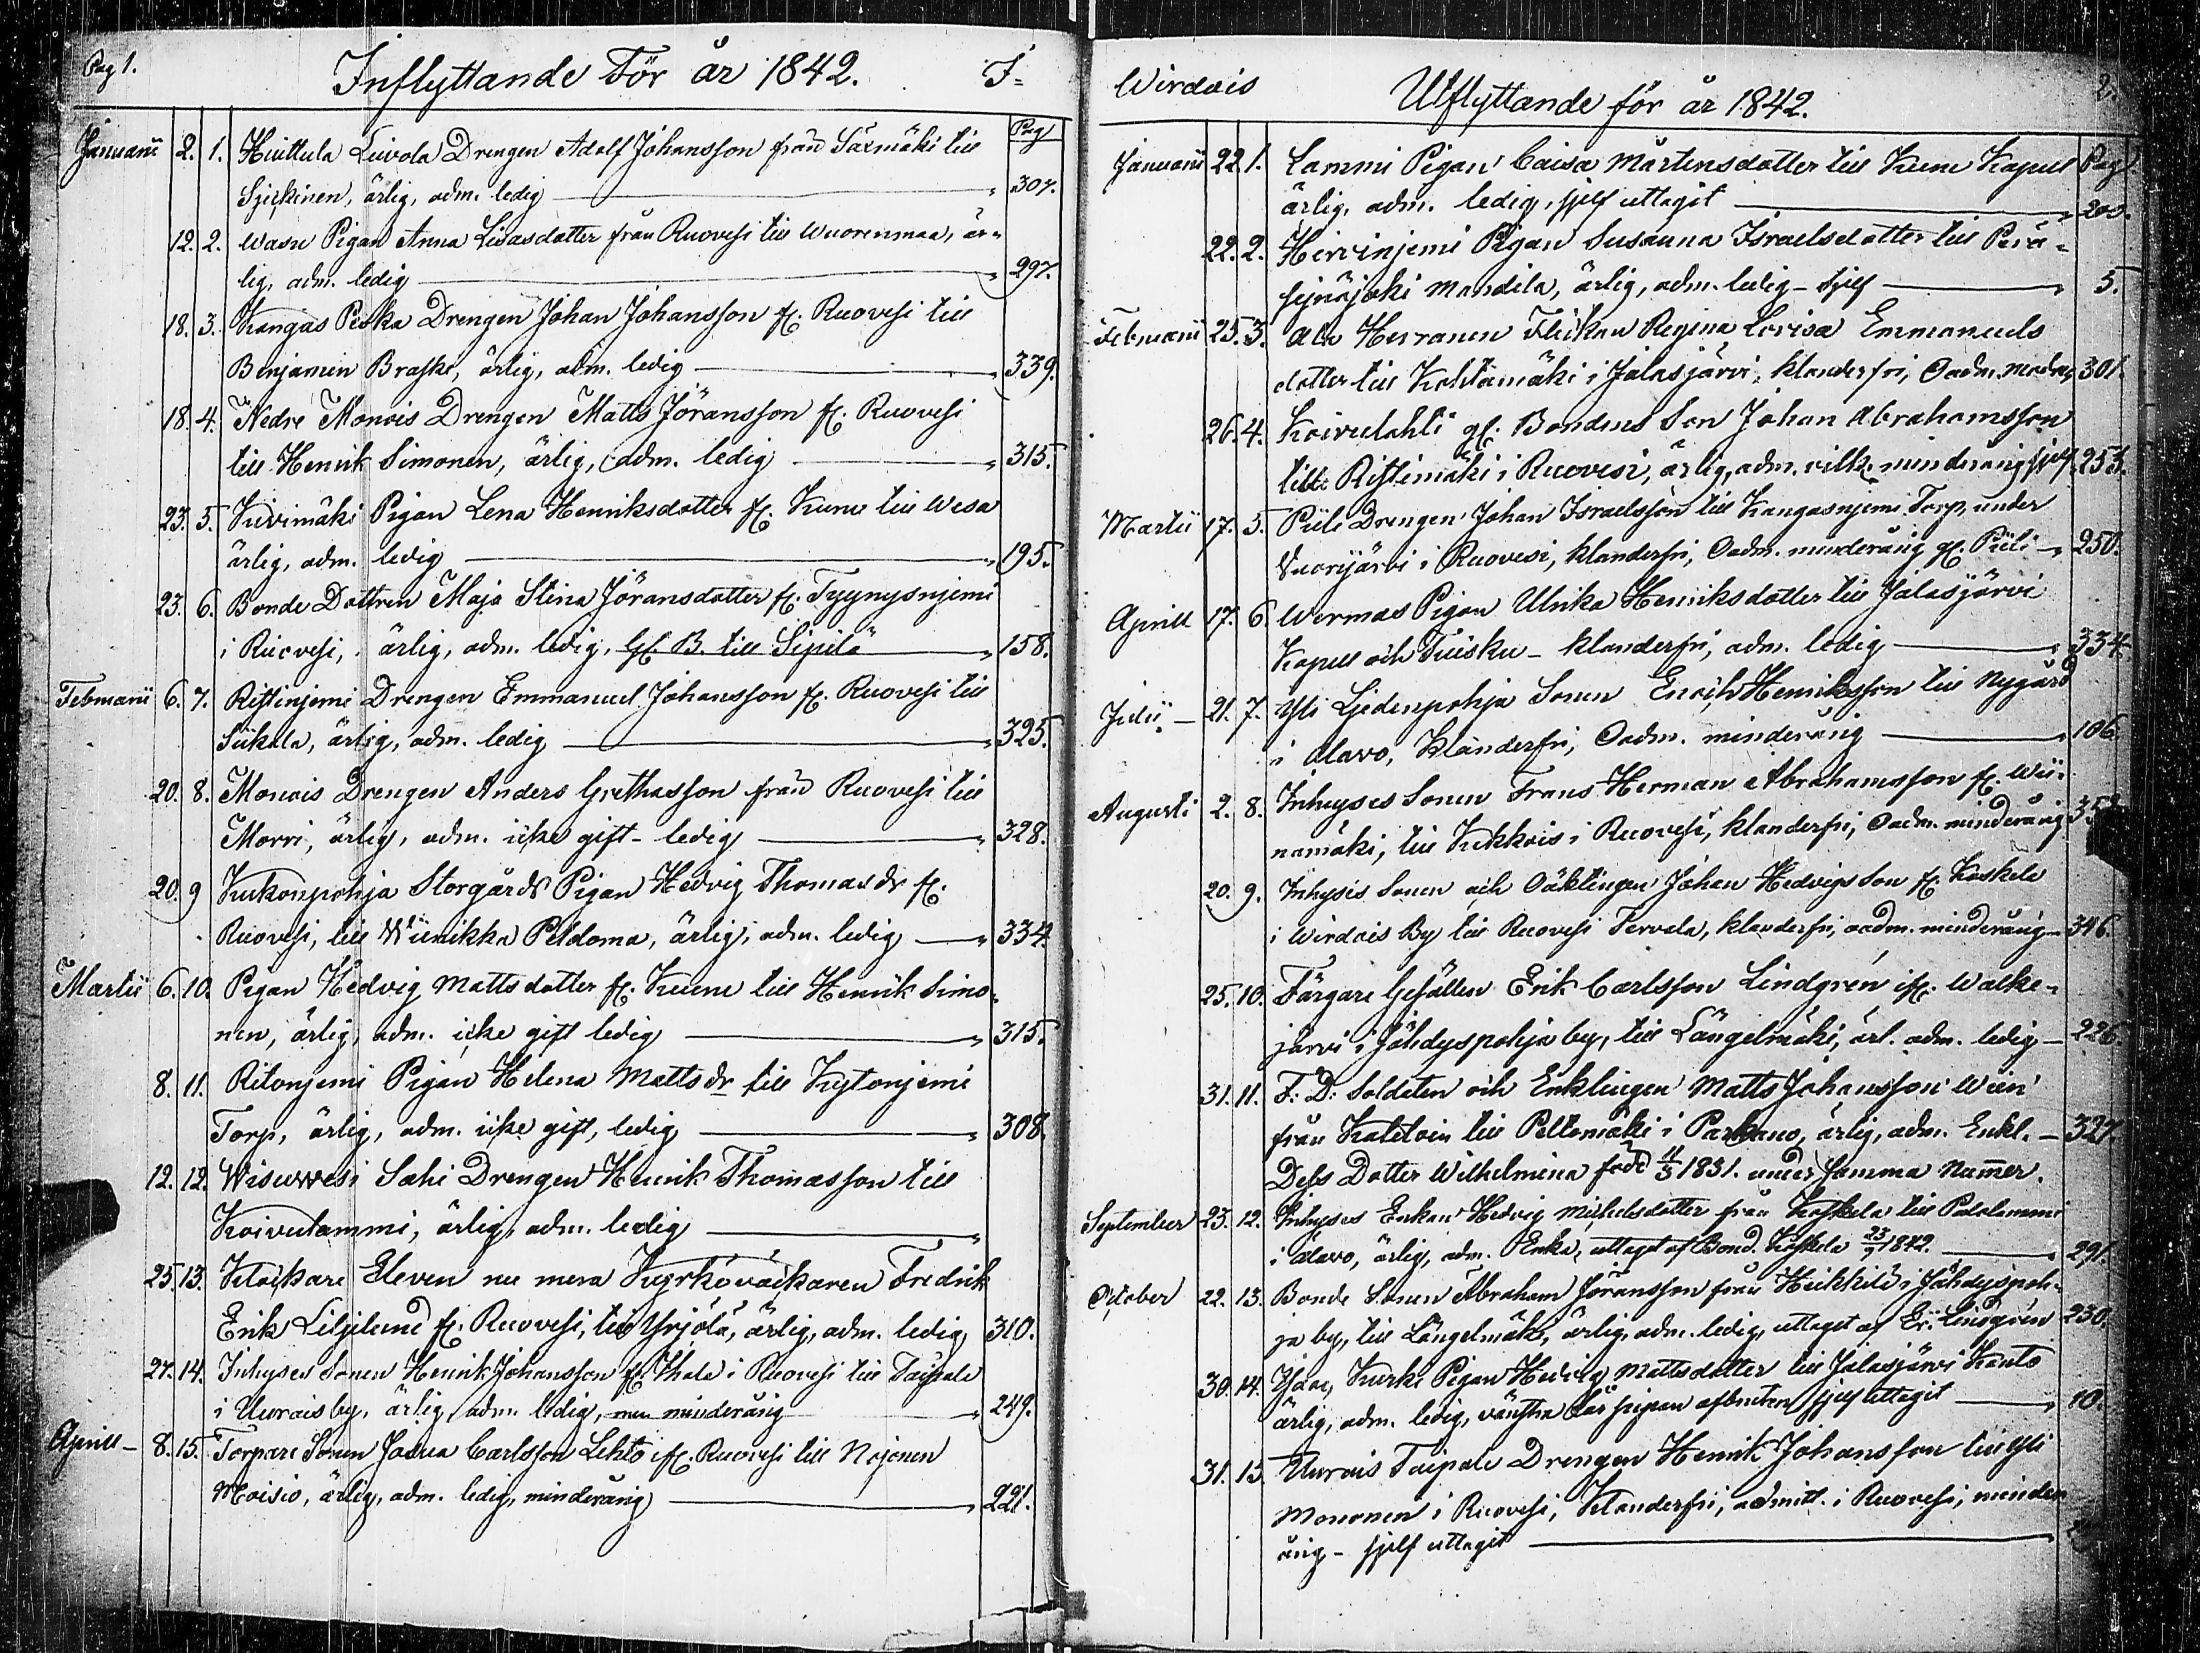 Pag 1.
Inflyttande För år 1842.
I-
Pag
Januarii 2. 1. Huittula Luvola Drengen Adolf Johansson från Säxmäki till
Sjickinen, ärlig, adm. ledig " 307.
12. 2. Wasu Pigan Anna Lisasdotter från Ruovesi till Wuorenmaa, är=
lig, adm. ledig " 297.
18. 3. Kangas Peska Drengen Johan Johansson fr. Ruovesi till
Benjamin Braske, ärlig, adm. ledig " 339.
18. 4. Nedre Monois Drengen Matts Jöransson fr. Ruovesi
till Henrik Simonen, ärlig, adm. ledig " 315.
23. 5. Kivimäki Pigan Lena Henriksdotter fr. Kuru till Wesa
ärlig, adm. ledig " 195.
23. 6. Bonde Dottren Maja Stina Jöransdotter fr. Tyynysnjemi
i Ruovesi, ärlig, adm. ledig, gf. B. till Sipilä " 158.
Februarii 6. 7. Ristinjemi Drengen Emmanuel Johansson fr. Ruovesi till
Siikala, ärlig, adm. ledig " 325.
20. 8. Monois Drengen Anders Grethasson från Ruovesi till
Morri, ärlig, adm. icke gift - ledig " 328.
20. 9 Kukonpohja Storgårds Pigan Hedvig Thomasdr fr.
Ruovesi, till Wiinikka Peldoma, ärlig, adm. ledig " 334
Martii 6. 10. Pigan Hedvig Mattsdotter fr. Kuru till Henrik Simo=
nen, ärlig, adm. icke gift ledig " 315.
8. 11. Ritonjemi Pigan Helena Mattsdr till Kytonjemi
Torp, ärlig, adm. icke gift, ledig " 308.
12. 12. Wisuvesi Sahi Drengen Henrik Thomasson till
Koivulammi, ärlig, adm. ledig "
25. 13. Klåckare Eleven nu mera Kyrkoväckaren Fredrik
Erik Liljelund fr. Ruovesi, till Yrjölä, ärlig, adm. ledig, 310.
27. 14. Inhyses Sonen Henrik Johansson fr. Ihala i Ruovesi till Taipale
i Uurais by, ärlig, adm. ledig, men minderårig " 249.
Aprill - 8. 15. Torpare Sonen Josua Carlsson Lehto ifr. Ruovesi till Nojonen
Moisio, ärlig, adm. ledig, minderårig " 221.
Wirdois
Utflyttande för år 1842.
2.
Pag.
Januarii 22. 1. Lammi Pigan Caisa Mårtensdotter till Kuru Kapell
ärlig, adm. ledig, sjelf uttagit " 200.
22. 2. Hirvinjemi Pigan Susanna Israelsdotter till Perä=
sejnäjoki Mandila, ärlig, adm. ledig - sjelf " 5.
Februarii 25. 3. Ala Herranen Flickan Regina Lovisa Emmanuels
dotter till Kohtamäki i Jalasjärvi, klanderfri, Oadm. 301.
26. 4. Koivulahti gf. Bondens Son Johan Abrahamsson
till Ristimäki i Ruovesi, ärlig, adm. minderårig sjelf 253.
Martii 17. 5. Piili Drengen Johan Israelsson till Kangasnjemi Torp, under
Vuorijärvi i Ruovesi, klanderfri, Oadm. minderårig gf. Piili " 250.
Aprill 17. 6 Wermas Pigan Ulrika Henriksdotter till Jalasjärvi
Kapell och Tuisku - klanderfri, adm. ledig " 334.
Julii - 21. 7. Yli Ljedenpohja Sonen Enoch Henriksson till Nygård
i Alavo, Klanderfri, Oadm. minderårig " 106.
Augusti 2. 8. Inhyses Sonen Frans Herman Abrahamsson fr. Wii=
namäki, till Kukkois i Ruovesi, klanderfri, Oadm. minderårig
20. 9. Inhysis Sonen och Oäktingen Johan Hedvigs Son fr. Koskela
i Wirdois By till Ruovesi Tervala, klanderfri, oadm. minderårig - 346.
25. 10. Färgare Gesällen Erik Carlsson Lindgrén ifr. Walke=
järvi i Jähdyspohja by, till Längelmäki, ärl. adm. ledig - 226
31. 11. F: D: Soldaten och Enklingen Matts Johansson Wän
från Kaleton till Peltomäki i Parkano, ärlig, adm. Enkl. - 327.
Dess Dotter Wilhelmina född 11/5 1831. under samma Numer.
September 23. 12. Inhyses Enkan Hedvig Michelsdotter från Koskela till Palolammi
i Alavo, ärlig, adm. Enka, uttaget af Bond. Koskela 23/9 1842. " 291.
October 22. 13. Bonde Sonen Abraham Jöransson från Heikkilä i Jähdyspoh=
ja by, till Längelmäki, ärlig, adm. ledig, uttaget af Er. Lindgrén 230.
30. 14. Isaac, Kurki Pigan Hedvig Mattsdotter till Jalasjärvi Kanto
ärlig, adm. ledig, vänstra afbruten sjelf uttagit " 10.
31. 15. Uurais Taipale Drengen Henrik Johansson till Yli
Mononen i Ruovesi, Klanderfri, admitt. i Ruovesi, minder
årig - sjelf uttagit